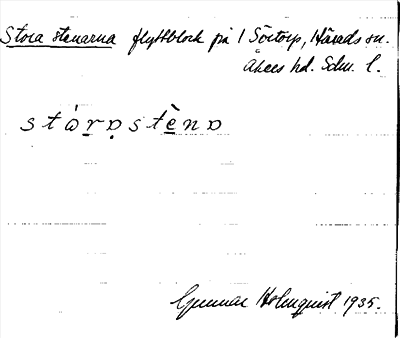 Stora stenarna flyttblock på 1 Sörtorp, Härads sn.
Åkers hd. Sdm. l.
stòrastèna
Gunnar Holmquist 1935.